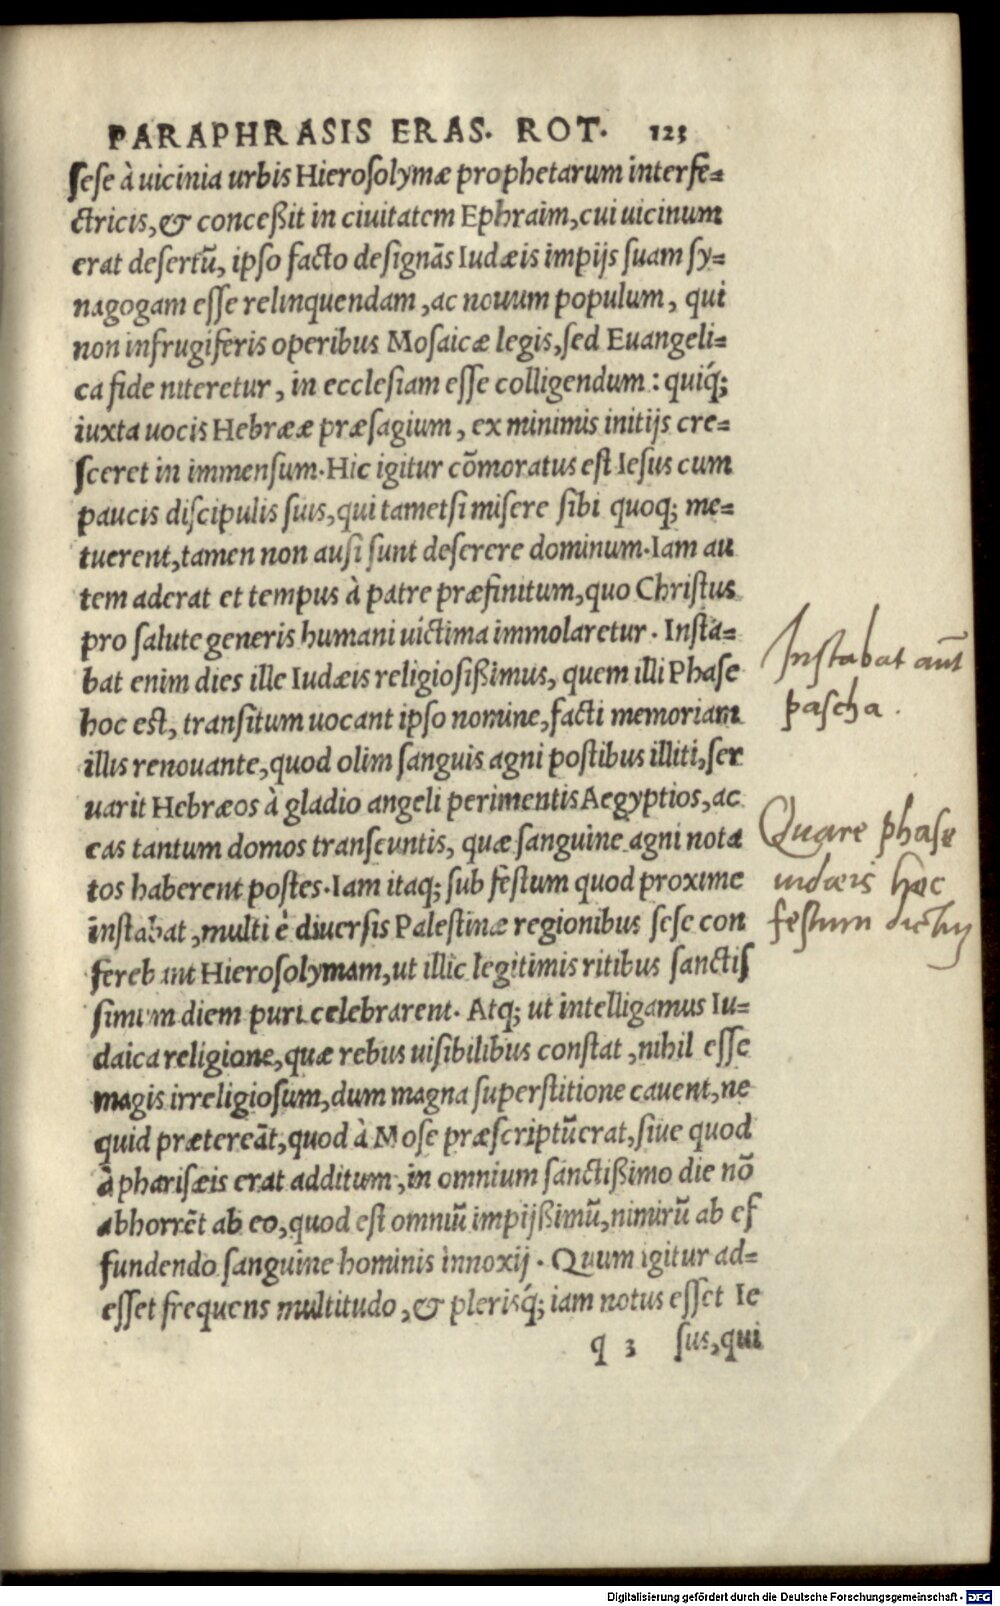 PARAPHRASIS ERAS. ROT. 123
sese à uicinia urbis Hierosolymæ prophetarum interfe=
ctricis, & conceßit in ciuitatem Ephraim, cui uicinum
erat desertū, ipso facto designās Iudæis impijs suam sy=
nagogam esse relinquendam, ac nouum populum, qui
non infrugiferis operibus Mosaicæ legis, sed Euangeli=
ca fide niteretur, in ecclesiam esse colligendum: quiq́;
iuxta uocis Hebrææ præsagium, ex minimis initijs cre=
sceret in immensum. Hic igitur cōmoratus est Iesus cum
paucis discipulis suis, qui tametsi misere sibi quoq; me=
tuerent, tamen non ausi sunt deserere dominum. Iam au
tem aderat et tempus à patre præfinitum, quo Christus
pro salute generis humani uictima immolaretur. Insta=
bat enim dies ille Iudæis religiosißimus, quem illi Phase
hoc est, transitum uocant ipso nomine, facti memoriam
illis renouante, quod olim sanguis agni postibus illiti, ser
uarit Hebræos à gladio angeli perimentis Aegyptios, ac
eas tantum domos transeuntis, quæ sanguine agni nota
tos haberent postes. Iam itaq; sub festum quod proxime
instabat, multi è diuersis Palestinæ regionibus sese con
ferebant Hierosolymam, ut illic legitimis ritibus sanctis
simum diem puri celebrarent. Atq; ut intelligamus Iu=
daica religione, quæ rebus uisibilibus constat, nihil esse
magis irreligiosum, dum magna superstitione cauent, ne
quid prætereāt, quod à Mose præscriptū erat, siue quod
à pharisæis erat additum, in omnium sanctißimo die nō
abhorrēt ab eo, quod est omniū impijßimū, nimirū ab ef
fundendo sanguine hominis innoxij. Quum igitur ad=
esset frequens multitudo, & plerisq́; iam notus esset Ie
q 3 sus, qui
Instabat aūt
pascha.
Quare phase
iudæis hoc
festum dictū
Digitalisierung gefördert durch die Deutsche Forschungsgemeinschaft - DFG